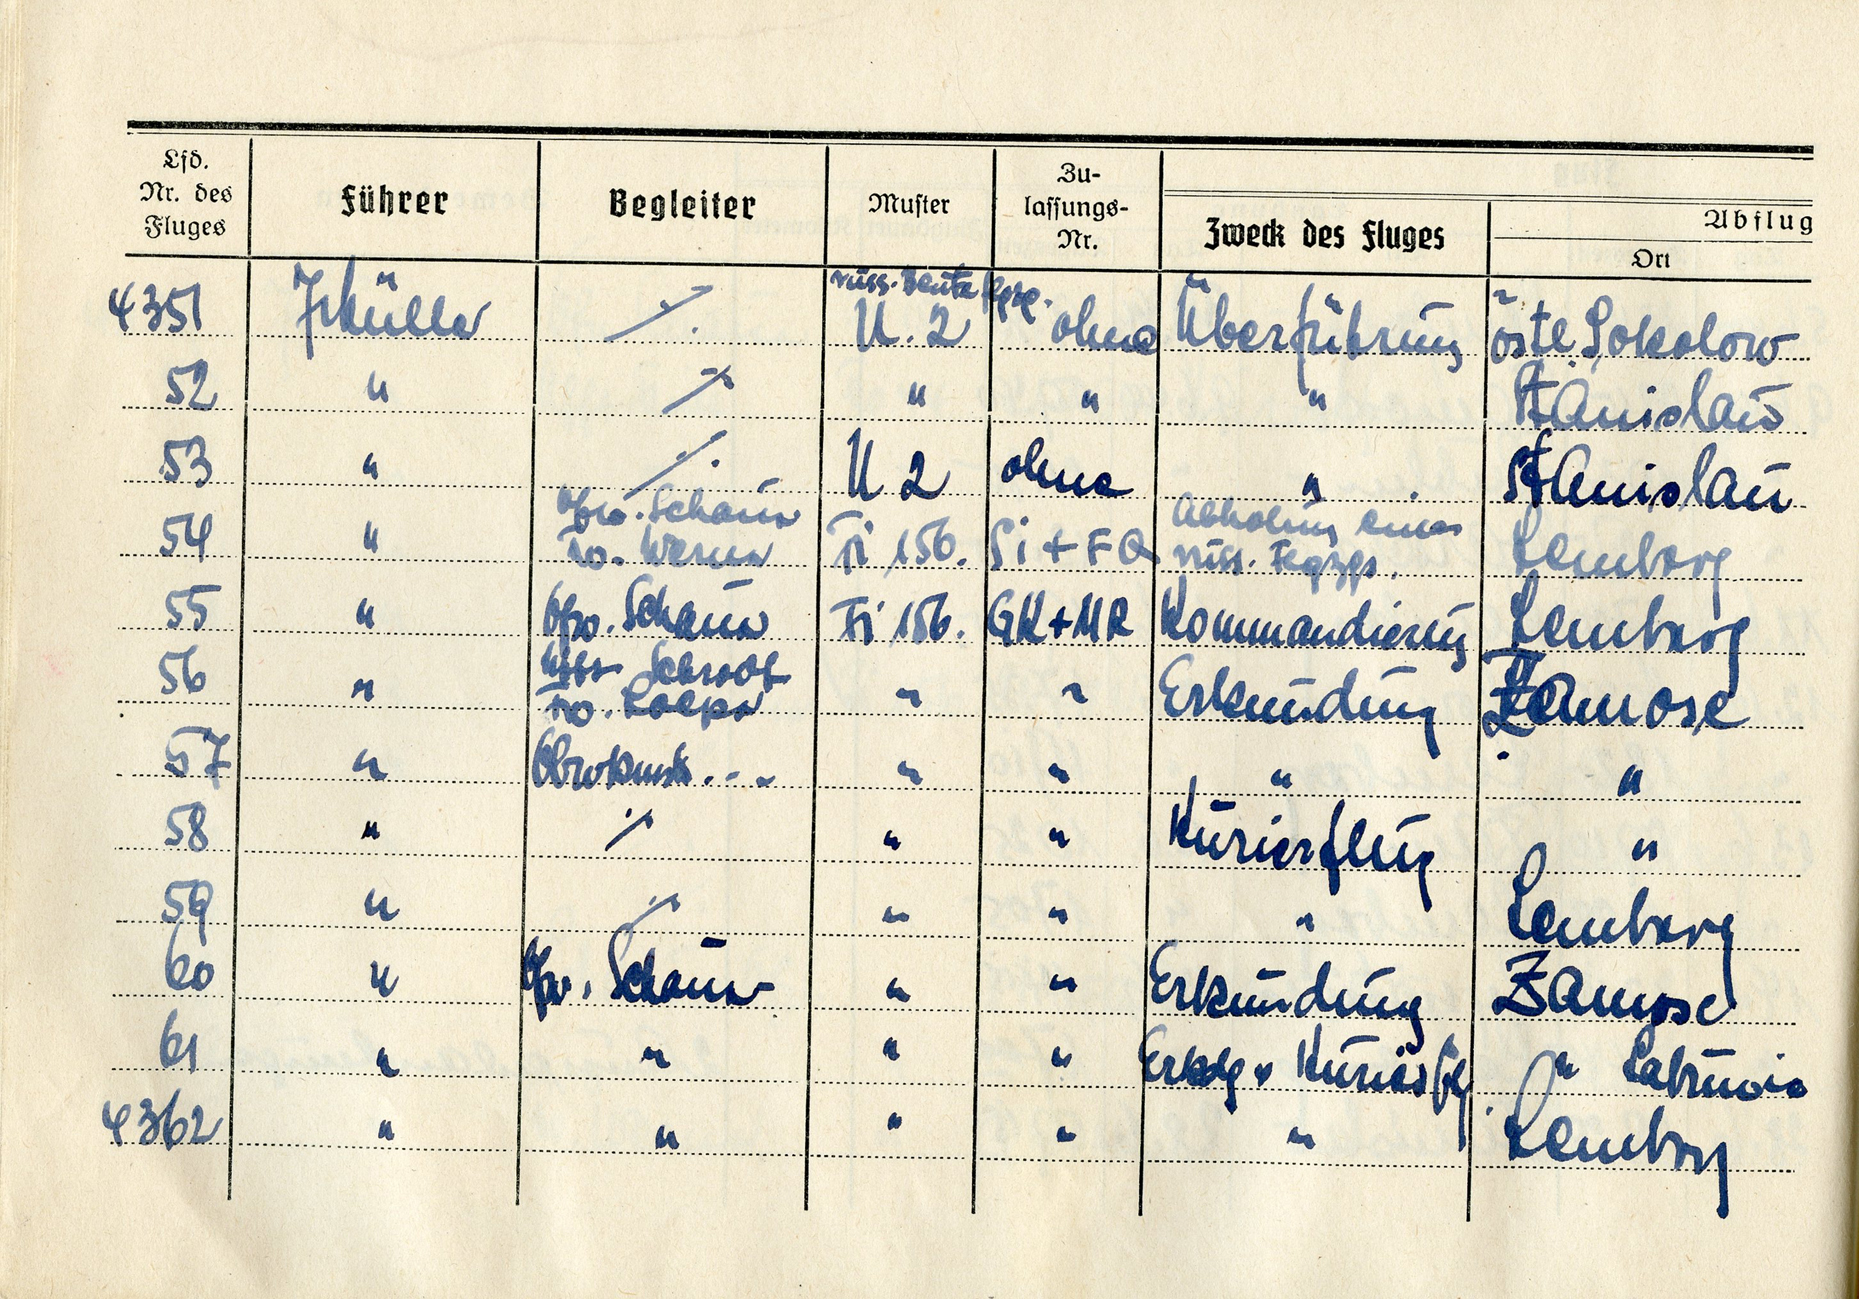 Lfd. Nr. des Fluges Führer Begleiter Muster Zulassungs-Nr. Zweck des Fluges Abflug Ort
4351 Müller ⁒ russ. Beute U. 2 ohne Überführung östl. Sokolow
52 " ⁒ " " " Stanislau
53 " ⁒ U 2 ohne " Stanislau
Ofw. Schaur Abholung eines
54 " Fi 156. Si + FQ russ. Lemberg
55 " Ofw. Schaur Fi 156. GK+MR Kommandierung Lemberg
56 " " " Erkundung Zamosc
57 " " " " "
58 " ⁒ " " Kurierflug "
59 " ⁒ " " " Lemberg
60 " Ofw. Schaur " " Erkundung Zamosc
61 " " " " Erkdg u Kurierflg "
4362 " " " " " Lemberg